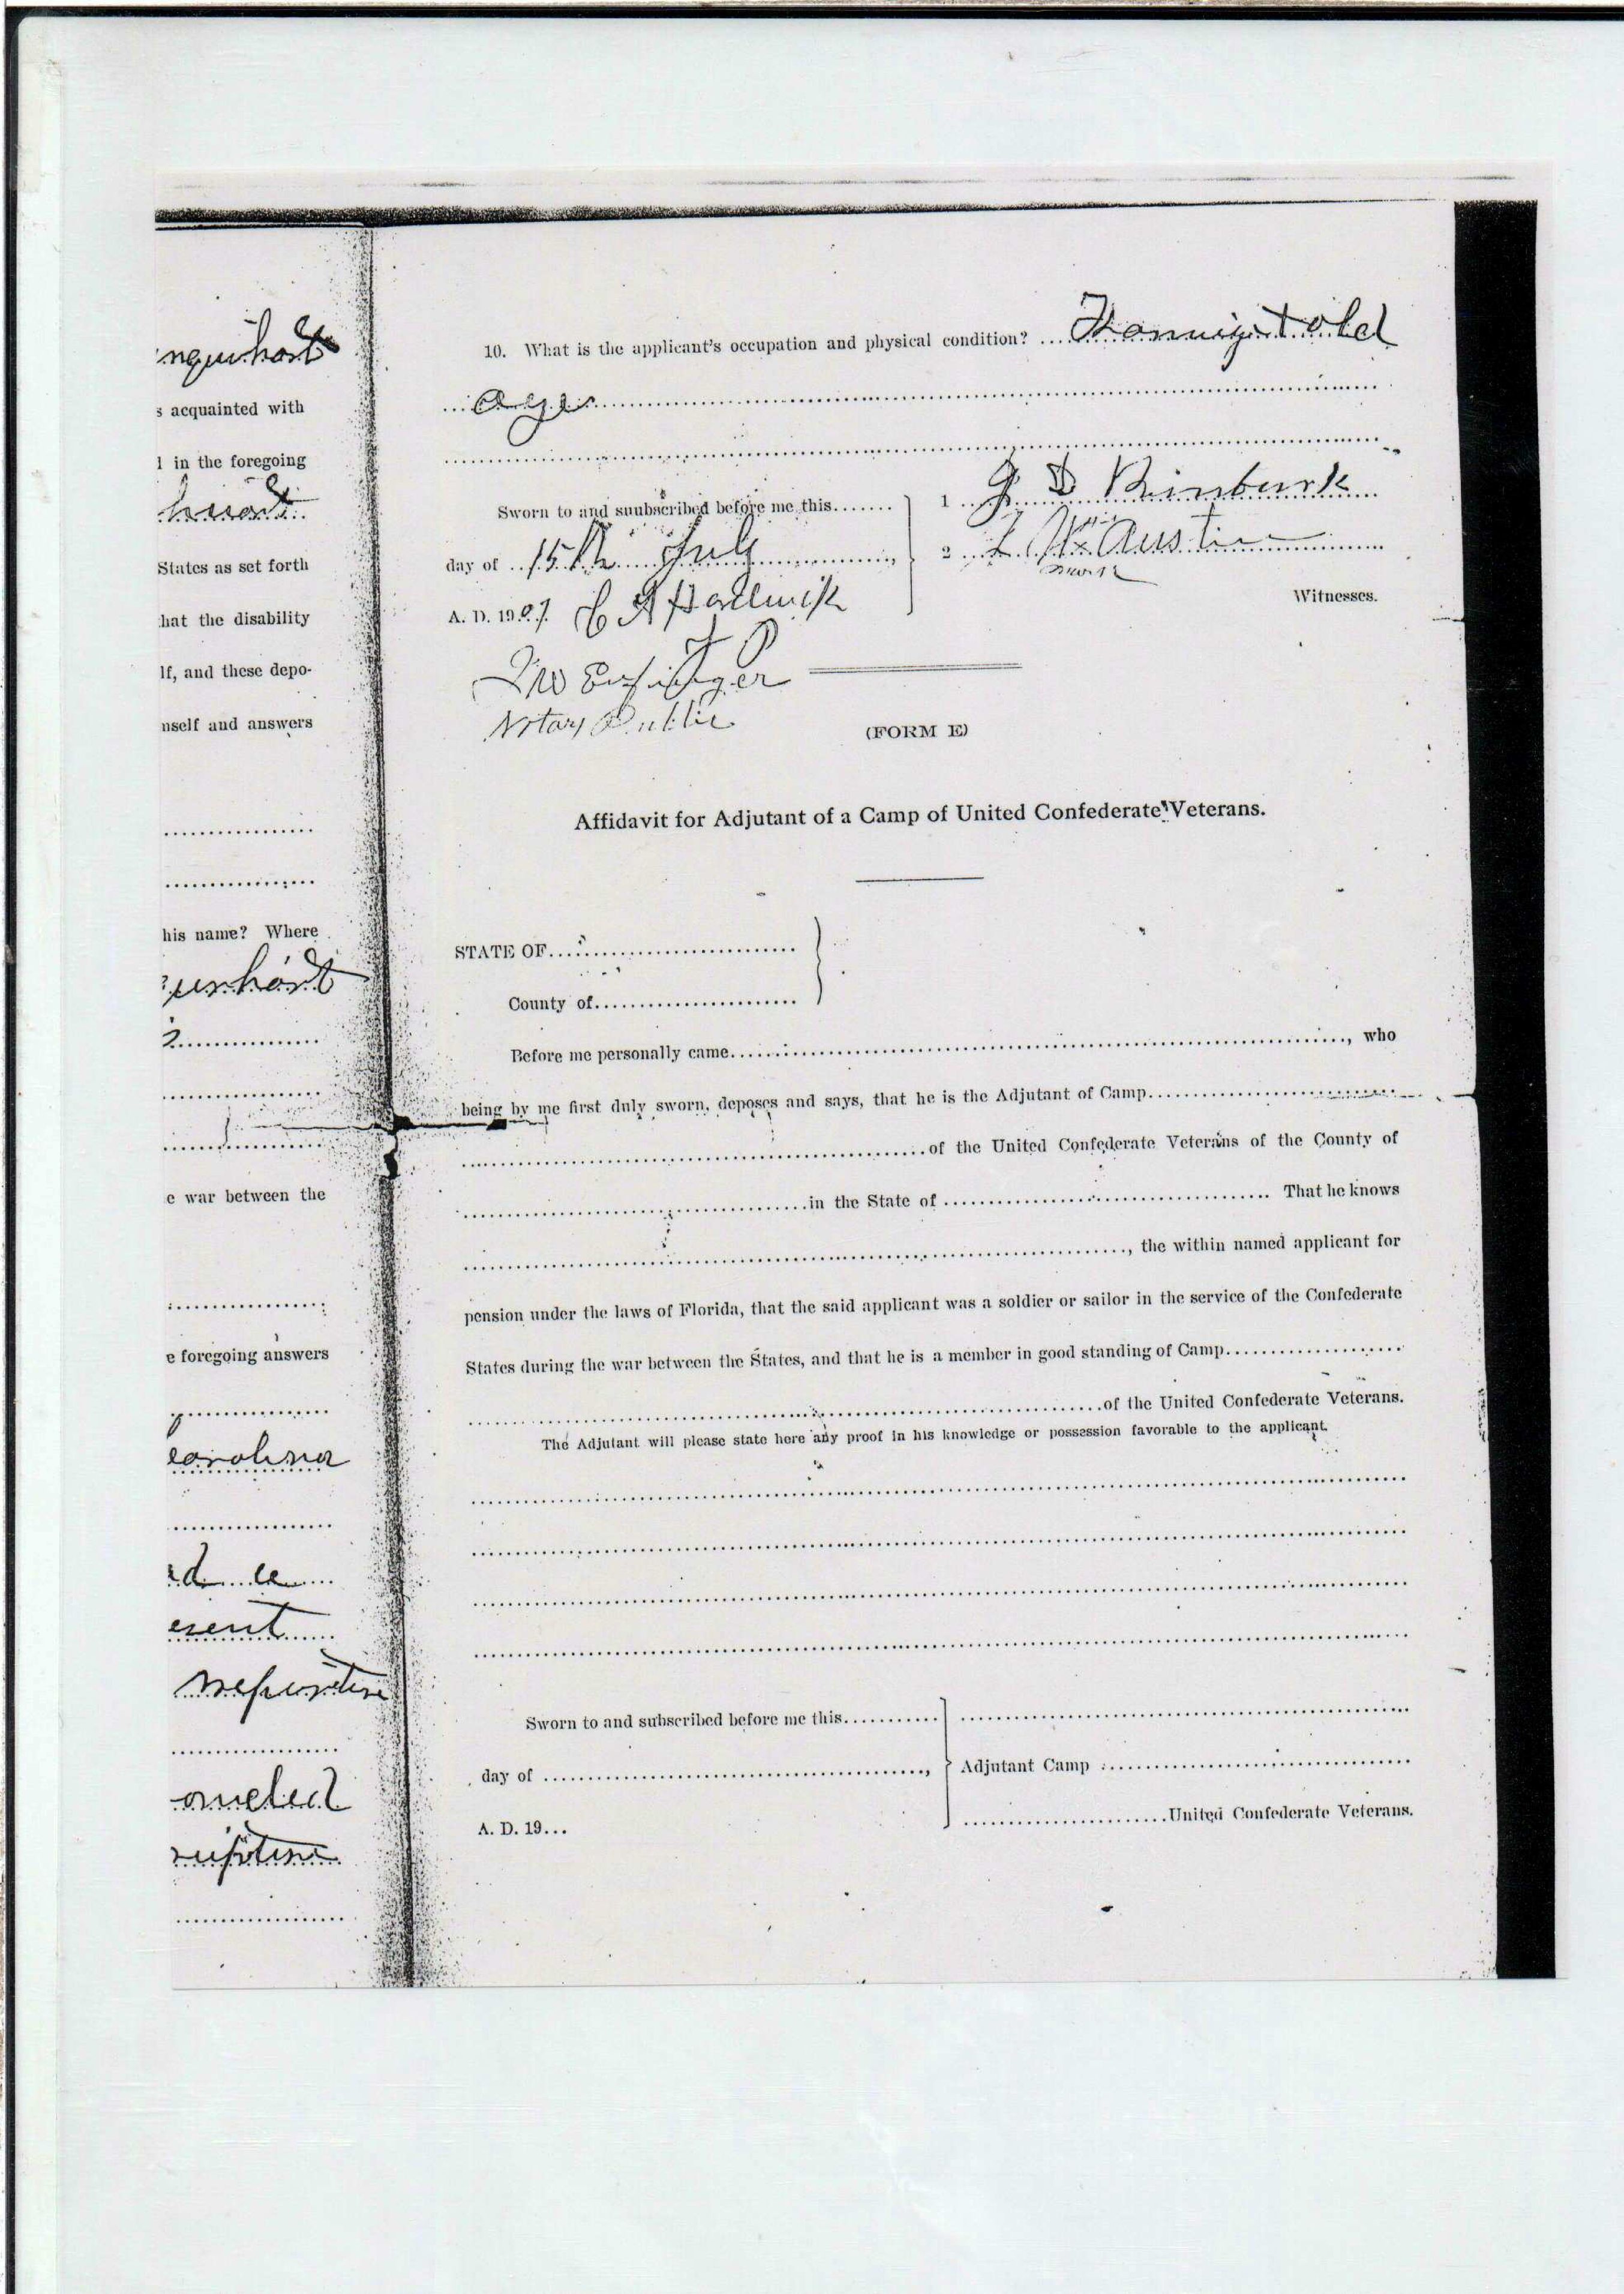 s acquainted with
in the foregoing
States as set forth
hat the disability
lf, and these depo-
nself and answers
his name? Where
e war between the
e foregoing answers
carolina
esent
10. What is the applicant's occupation and physical condition? old
age
Sworn to and suubscribed before me this
day of 15th July
A. D. 1907
1
2 Austin
mark
Witnesses.
J P
Notary Public
(FORM E)
Affidavit for Adjutant of a Camp of United Confederate Veterans.
STATE OF
County of
Before me personally came, who
being by me first duly sworn, deposes and says, that he is the Adjutant of Camp
of the United Confederate Veterans of the County of
in the State of That he knows
, the within named applicant for
pension under the laws of Florida, that the said applicant was a soldier or sailor in the service of the Confederate
States during the war between the States, and that he is a member in good standing of Camp
of the United Confederate Veterans.
The Adjutant will please state here any proof in his knowledge or possession favorable to the applicant.
Sworn to and subscribed before me this
day of ,
A. D. 19...
Adjutant Camp
United Confederate Veterans.